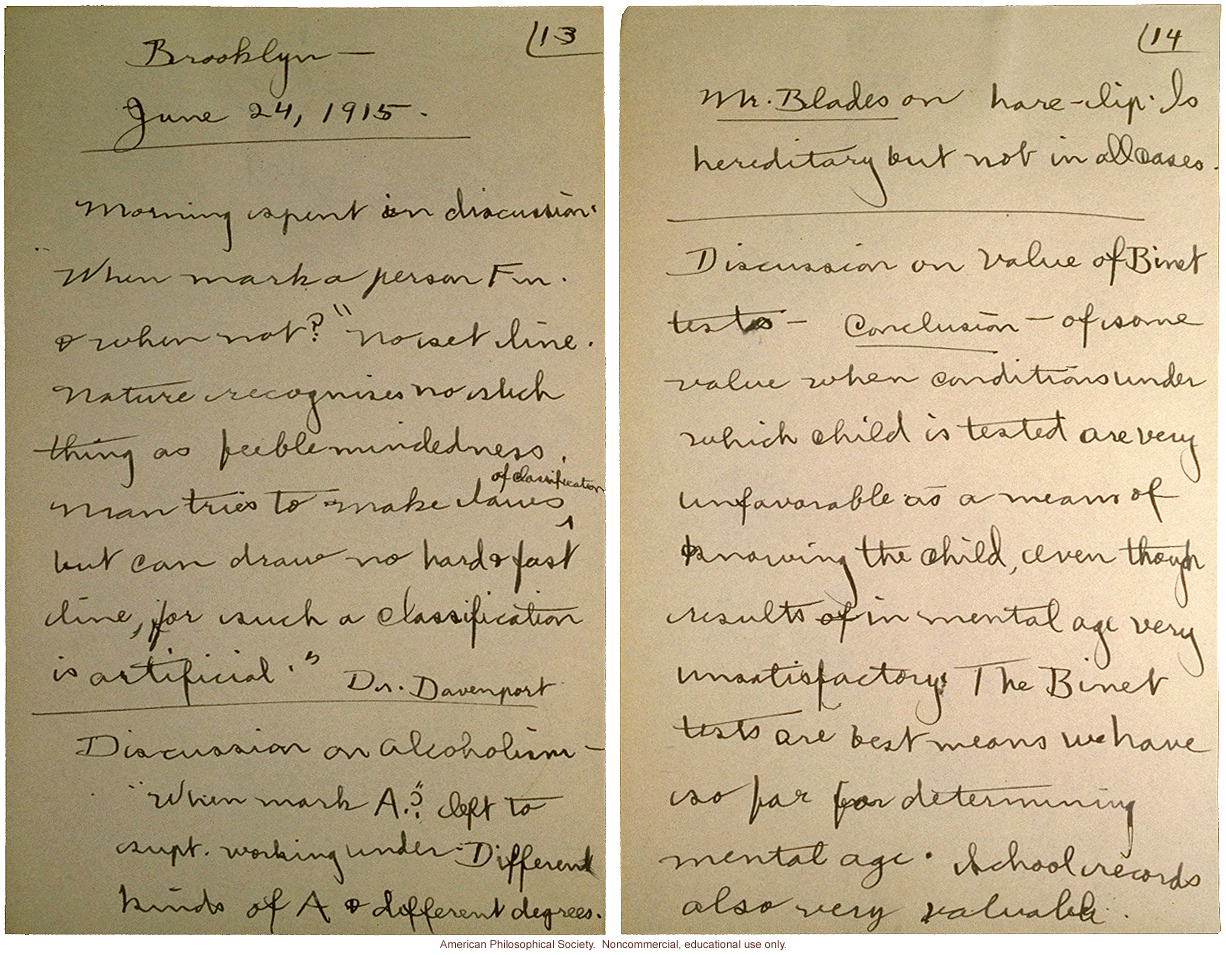 13
Brooklyn —
June 24, 1915.
Morning spent in discussion:
"When mark a person Fm.
& when not?" No set line.
Nature recognises no such
thing as feeblemindedness.
of classification
Man tries to make laws ^
but can draw no hard & fast
line, for such a classification
is artificial." Dr. Davenport
Discussion on alcoholism —
"When mark A.?" left to
supt. working under. Different
kinds of A & different degrees.
14
Mr. Blades on hare-lip. Is
hereditary but not in all cases.
Discussion on value of Binet
tests — Conclusion — of some
value when conditions under
which child is tested are very
unfavorable as a means of
knowing the child, even though
results of in mental age very
unsatisfactory. The Binet
tests are best means we have
so far for determining
mental age. School records
also very valuable.
American Philosophical Society. Noncommercial, educational use only.